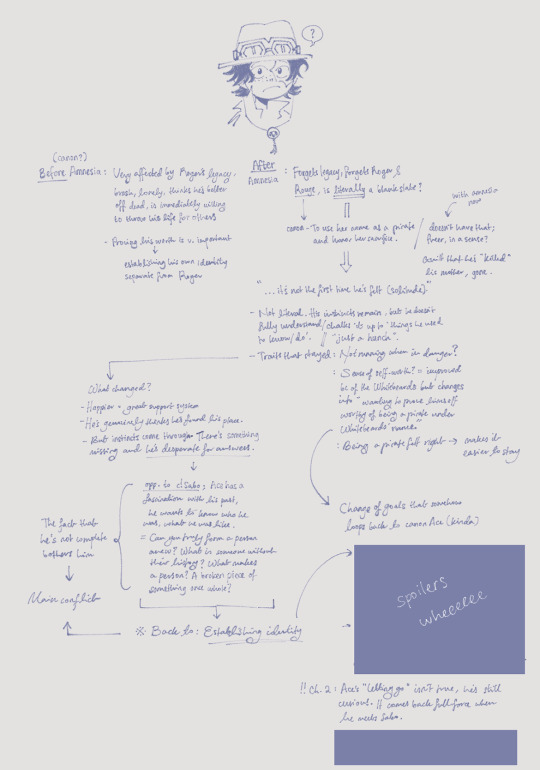 ?
(canon?)
Before Amnesia : Very affected by Roger's legacy.
brash, lonely, thinks he's better
off dead. is immediately willing
to throw his life for others
- Proving his worth is v. important
establishing his own identity
separate from Roger
After
Amnesia : Forgets legacy, forgets Roger &
Rouge, is literally a blank slate?
canon - To use her name as a pirate
and honor her sacrifice.
with amnesia
doesn't have that;
freer, in a sense?
Guilt that he's "killed"
his mother, gone.
"...it's not the first time he's felt (solitude)."
- Not literal. His instincts remain, but he doesn't
fully understand/chalks its up to "things he need
to know/do". // "just a hunch".
- Traits that stayed : Not running when in danger?
: Sense of self-worth? = improved
bc of the Whitebeards but changes
into "wanting to prove himself
worthy of being a pirate under
Whitebeard's name"
: Being a pirate felt right → makes it
easier to stay
What changed?
- Happier - great support system
- He's genuinely thinks he's found his place.
- But instincts come through. There's something
missing and he's desperate for answers.
opp. to c!Sabo : Ace has a
fascination with his past,
he wants to know who he
was, what he was like.
= Can you truly form a person
anew? What is someone without
their history? What makes
a person? A broken piece of
something once whole?
The fact that
he's not complete
bothers him
Main conflict
※ Back to : Establishing identity
Change of goals that somehow
loops back to canon Ace (kinda)
spoilers
wheeeeee
!! Ch. 2 : Ace's "letting go" isn't true, he's still
curious. It comes back full-force when
he meets Sabo.